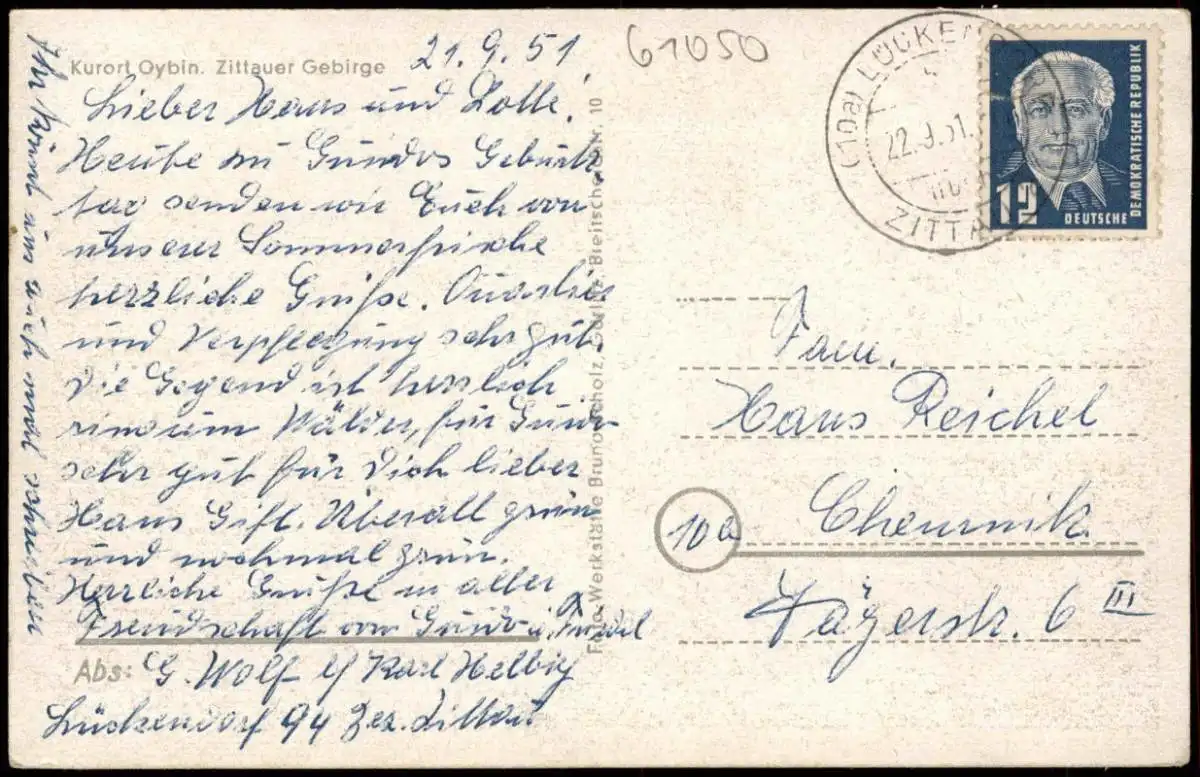 Kurort Oybin. Zittauer Gebirge
21.9.51.
61050
Lieber Hans und Lotte!
Heute zu Gundos Geburts
tag senden wir Euch von
unserer Sommerfrische
herzliche Grüße. Quartier
und Verpflegung sehr gut.
Die Gegend ist herrlich
ringsum Wälder, für
sehr gut für Dich lieber
Hans Gift. Überall grün
und nochmal grün.
Herzliche Grüße in aller
Freundschaft von u.
Abs: G. Wolf b/ Karl Helbig
Lückendorf 94 Bez. Zittau
Ihr könnt uns auch mal schreiben
Foto-Werkstätte Bruno Scholz, Görlitz, Breitscheidstr. 10
(10a) LÜCKENDORF
22.9.51.
ZITTAU
12
DEUTSCHE
DEMOKRATISCHE REPUBLIK
Fam.
Hans Reichel
10a
Chemnitz
Jägerstr. 6 III